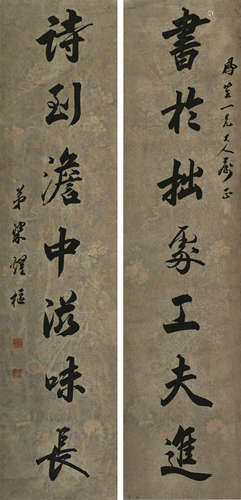 書於拙處工夫進
一兄大人屬正
詩到澹中滋味長
弟梁耀樞